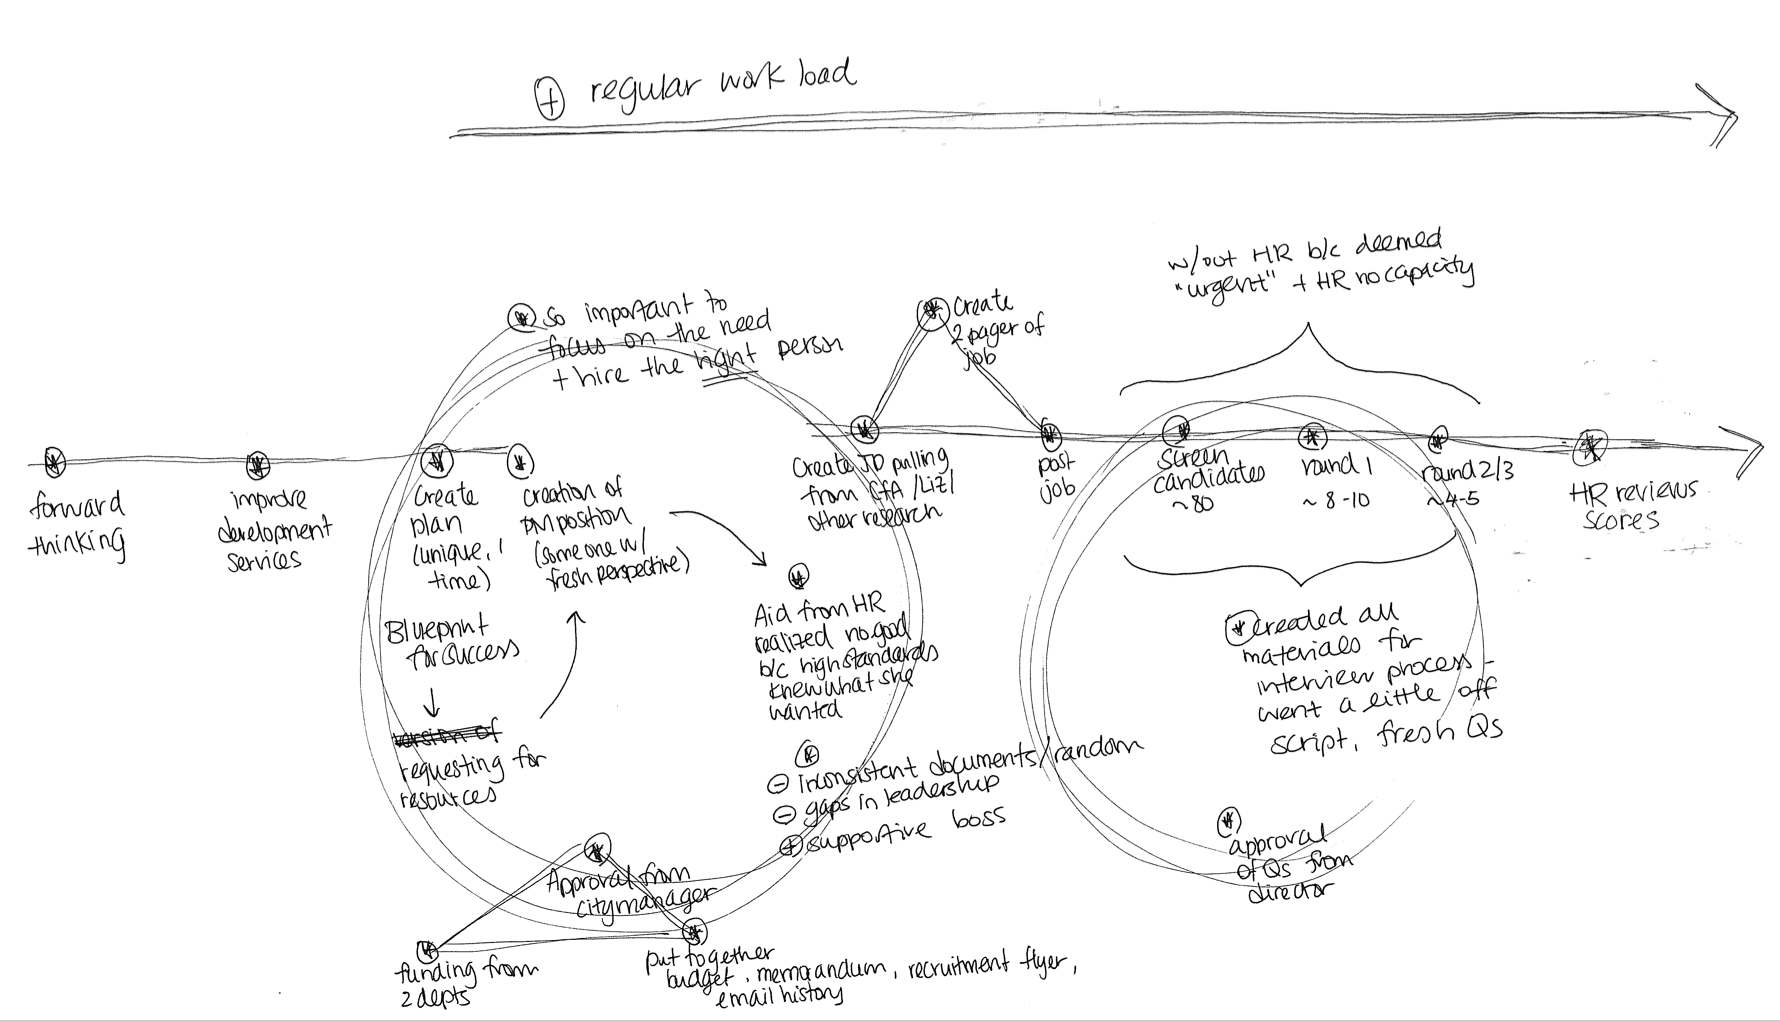 + regular work load
w/out HR b/c deemed
"urgent" + HR no capacity
so important to
focus on the need
+ hire the right person
Create
2 pager of
job
forward
thinking
improve
development
services
Create
plan
(unique, 1
time)
creation of
PM position
(someone w/
fresh perspective)
Create JD pulling
from CfA /Liz/
other research
post
job
screen
candidates
~80
round 1
~ 8-10
round 2/3
~4-5
HR reviews
scores
Blueprint
for success
version of
requesting for
resources
Aid from HR
realized no good
b/c high standards
knew what she
wanted
- inconsistent documents/random
- gaps in leadership
+ supportive boss
created all
materials for
interview process -
went a little off
script, fresh Qs
approval
of Qs from
director
Approval from
city manager
funding from
2 depts
put together
budget, memorandum, recruitment flyer,
email history